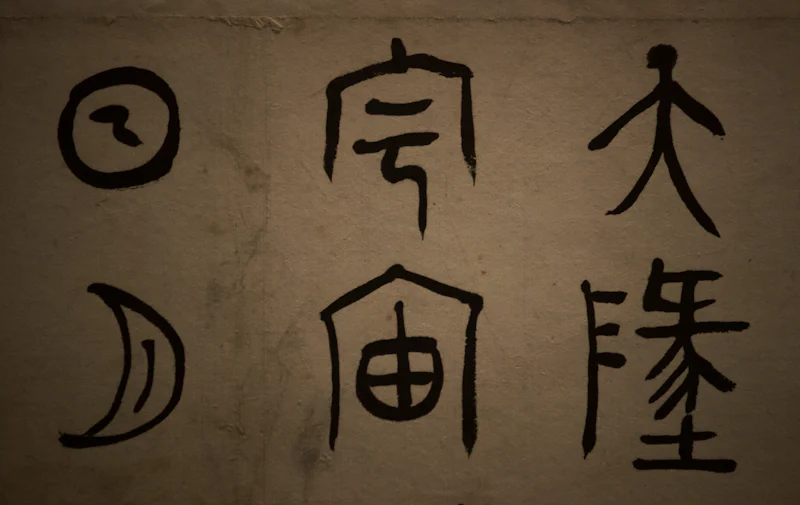 大墬
宇宙
日月